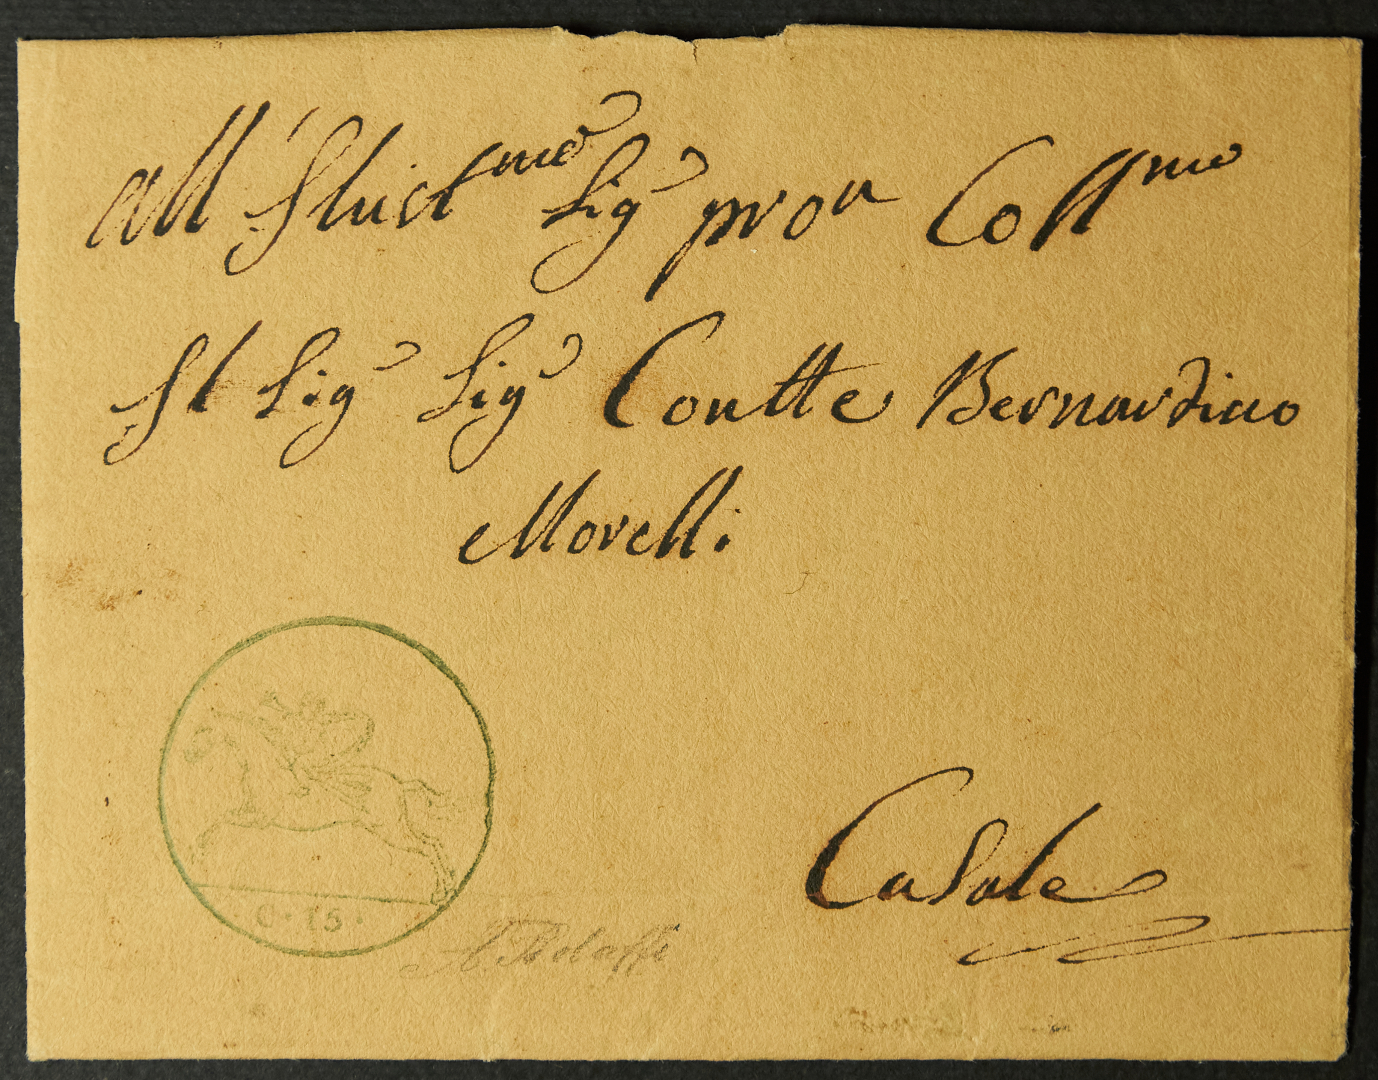 All' Illust^mo Sig^r pron Coll^mo
Il Sig^r Sig^r Contte Bernardino
Morelli.
Casale
C. 15.